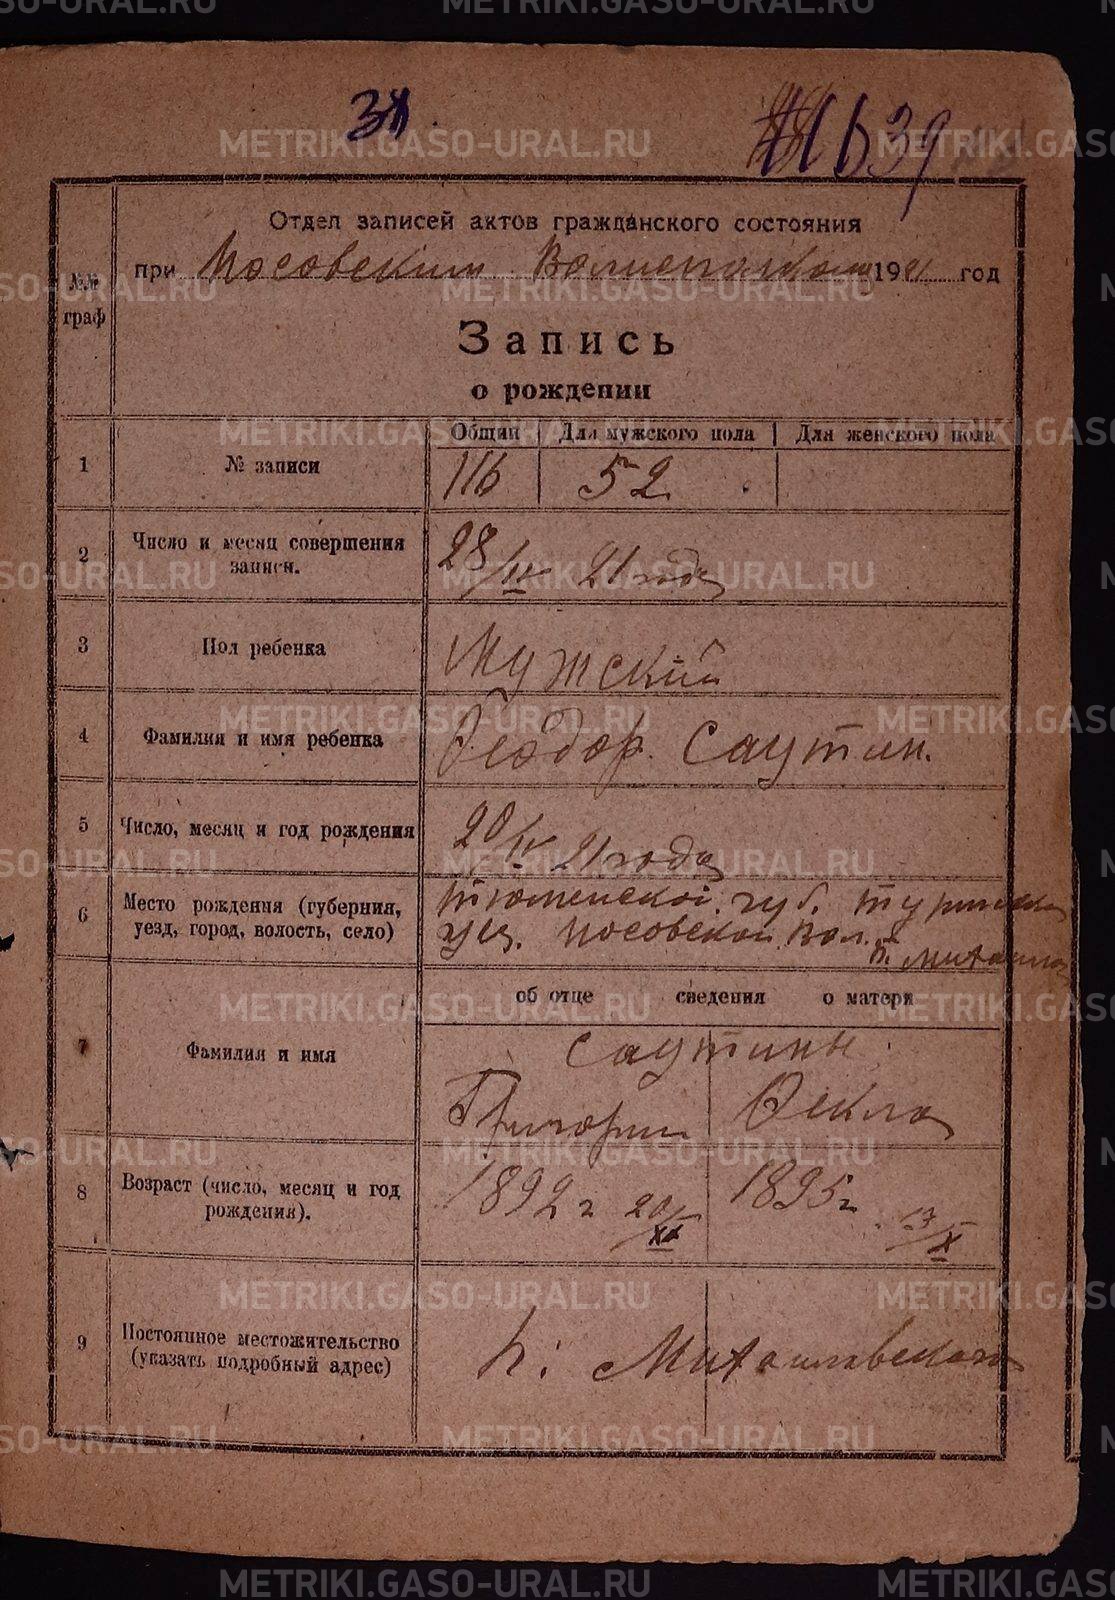 METRIKI.GASO-URAL.RU
Отдел записей актов гражданского состояния
при Носовским Волисполкоме 1921 год
№№ граф
Запись
о рождении
Общий Для мужского пола Для женского пола
1 № записи 116 52
2 Число и месяц совершения записи. 28/IV 21 года
3 Пол ребенка Мужский
4 Фамилия и имя ребенка Феодор. Саутин.
5 Число, месяц и год рождения 20/IV 21 года
6 Место рождения (губерния, уезд, город, волость, село) Тюменской. губ. Туринска
уез. Носовской Вол.
об отце сведения о матери
7 Фамилия и имя Саутины.
Григорий Фекла
8 Возраст (число, месяц и год рождения). 1892 г 1895 г 17/X
9 Постоянное местожительство (указать подробный адрес) п. Михаиловского